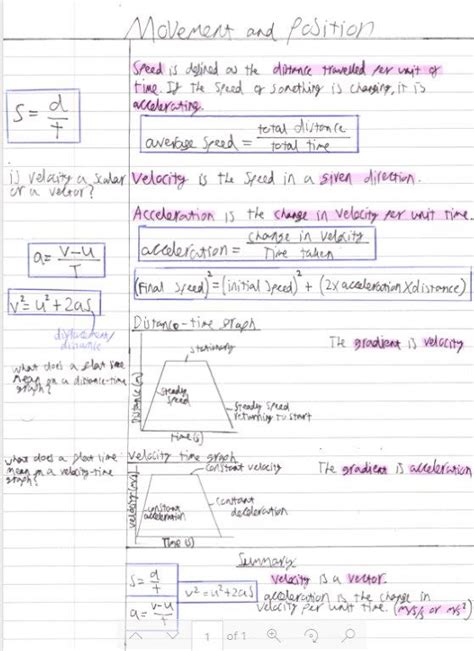 Movement and Position
Speed is defined as the distance travelled per unit of
time. If the speed of something is changing, it is
accelerating.
S = d/t
average speed = total distance / total time
is velocity a scalar
or a vector?
Velocity is the speed in a given direction.
Acceleration is the change in velocity per unit time.
a = v-u/T
acceleration = change in velocity / Time taken
v² = u² + 2as
(Final speed)² = (initial speed)² + (2 x acceleration x distance)
displacement/
distance
Distance-time graph
The gradient is velocity
what does a flat line
mean on a distance-time
graph?
stationary
steady
speed
steady speed
returning to start
Distance (m)
Time (s)
what does a flat line
mean on a velocity-time
graph?
Velocity time graph
constant velocity
The gradient is acceleration
constant
acceleration
constant
deceleration
velocity (m/s)
Time (s)
Summary
S = d/t
v² = u² + 2as
a = v-u/t
velocity is a vector.
acceleration is the change in
velocity per unit time. (m/s/s or m/s²)
1 of 1